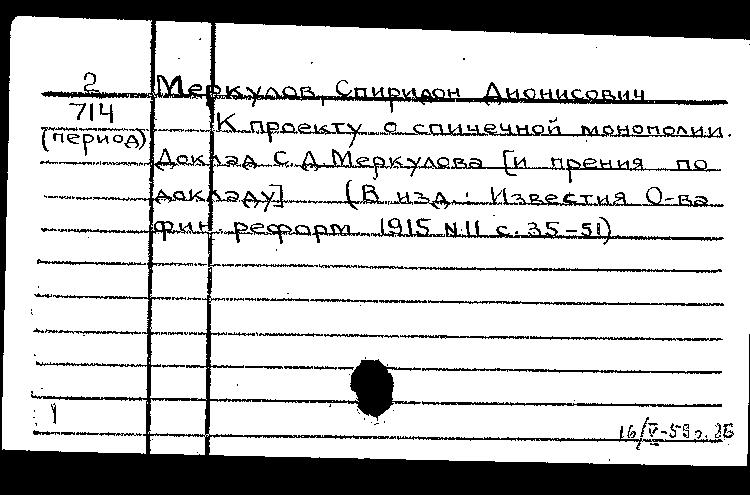 2 Меркулов, Спиридон Дионисович
714 К проекту о спичечной монополии.
(период)
Доклад С.Д. Меркулова [и прения по
докладу] (В изд.: Известия О-ва
фин. реформ 1915 №11 с. 35-51)
1
16/V-59г.